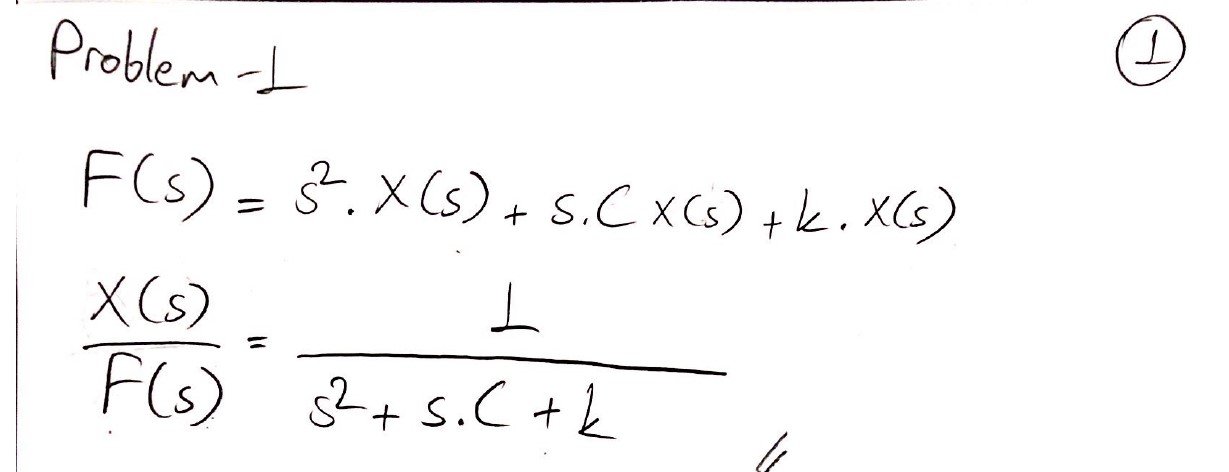 Problem-1
①
F(s) = s². X(s) + s.C X(s) + k. X(s)
X(s)/F(s) = 1/(s² + s.C + k)